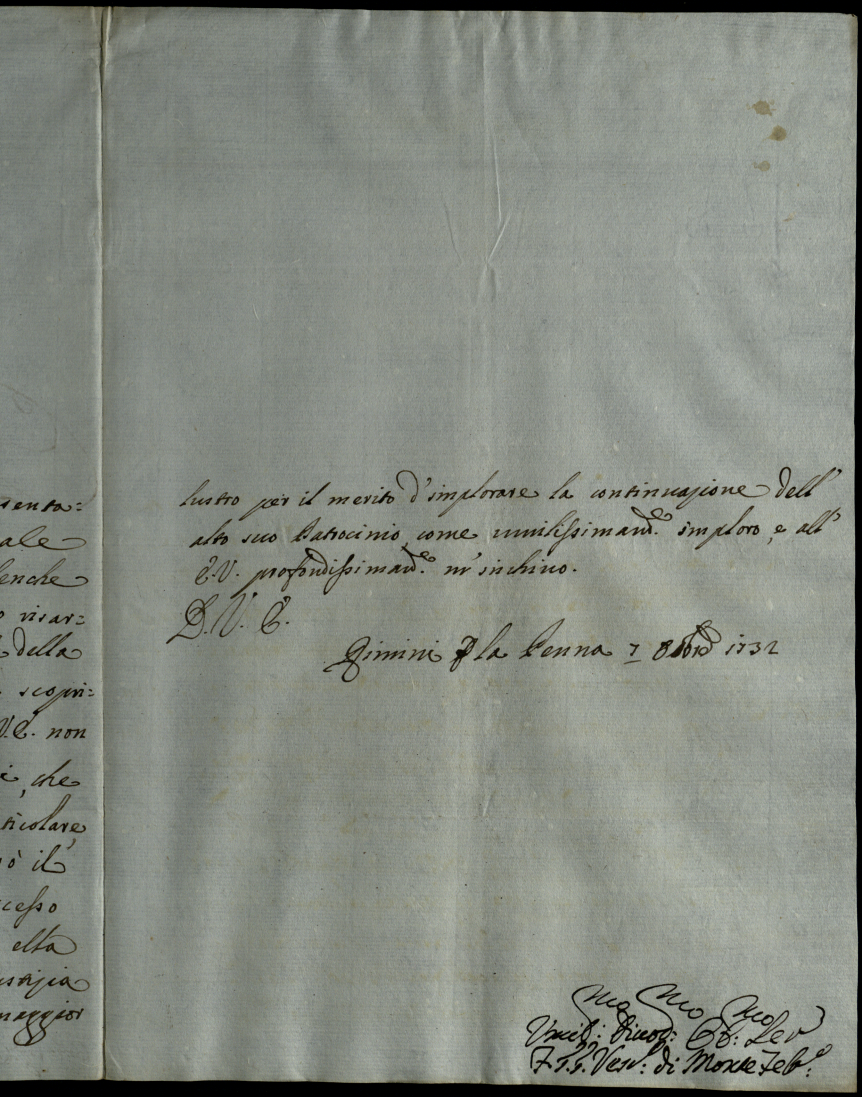 senta=
ale
lenche
o risar=
della
scopri=
V.E. non
i, che
ticolare,
ò il
cesso
elta
maggior
lustro per il merito d'implorare la continuazione dell'
alto suo Patrocinio, come umilissimam.e imploro, e all'
E.V. profondissimam.e m'inchino.
D. V. E.
Rimini p la Penna 7 8bre 1732
mo mo mo
Umil: Divot: Ob: Ser
Vesc: di Monte Feb:o